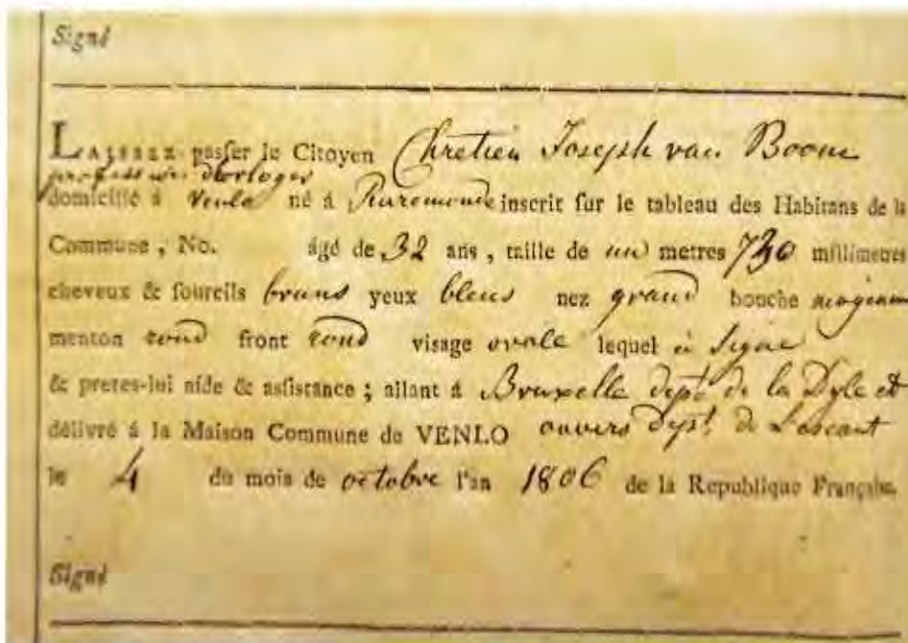 Signé
LAISSEZ passer le Citoyen Chretien Joseph van Boome
profession d'orloger
domicilié á Venlo né á Ruremonde inscrit sur le tableau des Habitans de la
Commune, No. ágé de 32 ans, taille de un metres 730 millimetres
cheveux & sourcils bruns yeux bleus nez grand bouche moyenne
menton rond front rond visage ovale lequel à signé
& pretes-lui aide & assistance; allant á Bruxelle dept. de la Dyle et
délivré á la Maison Commune de VENLO anvers dept. de L'escaut
le 4 du mois de octobre l'an 1806 de la Republique Française.
Signé